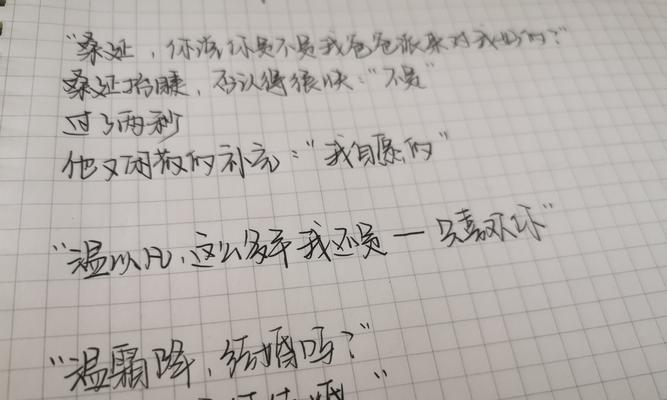 “桑延，你该不是我爸爸派来对我好的？”
桑延抬睫，否认得很快：“不是”
过了两秒
他又闲散的补充：“我自愿的”
“温以凡，这么多年我还是一只喜欢你”
“温霜降，结婚吗？”
婚”